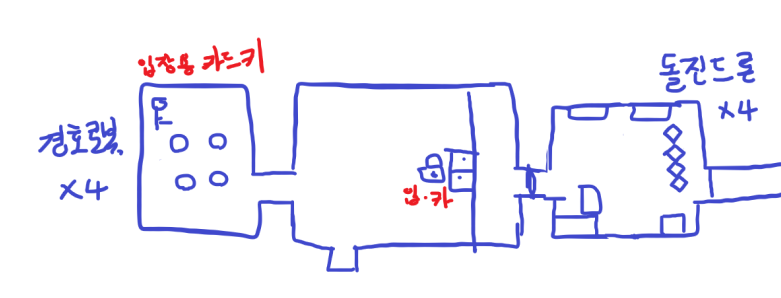 입장용 카드키
경호로봇
×4
입·카
돌진드론
×4